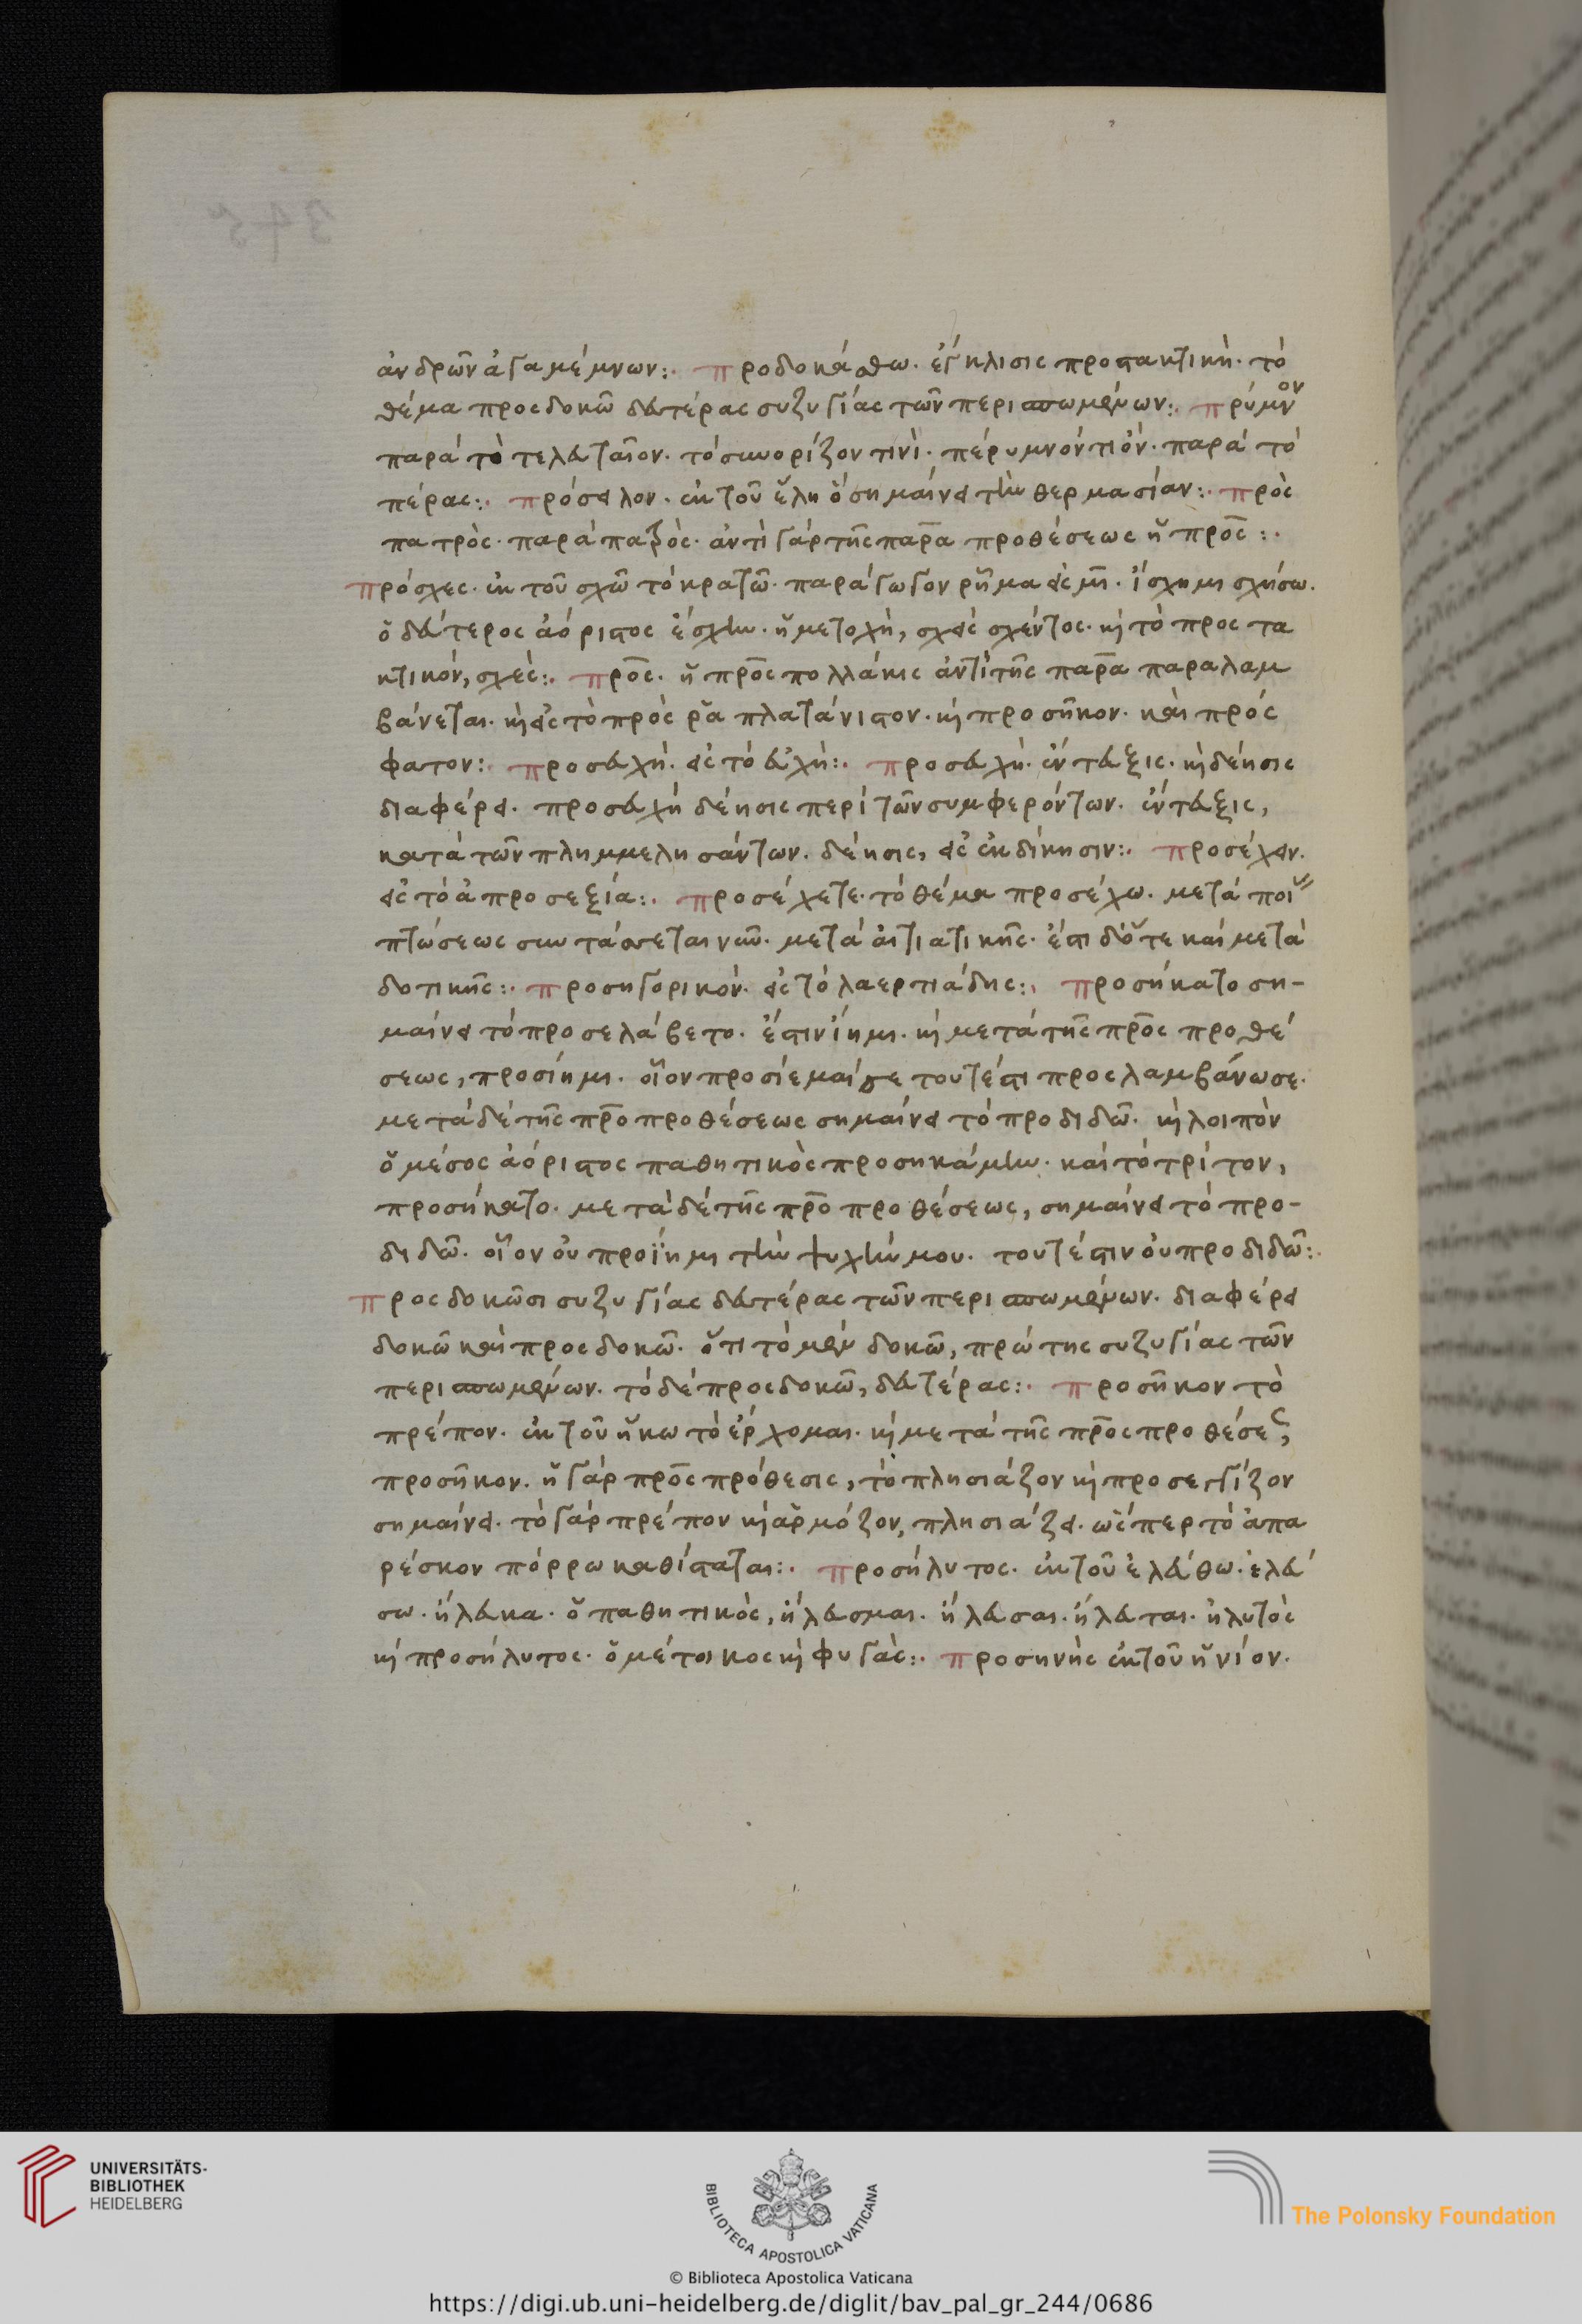 ἀνδρῶν ἀγαμέμνων:· προδοκάσθω. ἔγκλισις προστακτικὴ. τὸ
θέμα προσδοκῶ δευτέρας συζυγίας τῶν περισπωμένων:. πρύμνὸν
παρά τὸ τελευταῖον. τό συνορίζον τινὶ. πέρυμνόν τι ὄν. παρά τό
πέρας:. πρόσειλον. ἐκ τοῦ ἕλη ὅ σημαίνει τὴν θερμασίαν:. πρὸς
πατρὸς. παρά πατρὸς. ἀντί γάρ τῆς παρα προθέσεως ἡ προς:.
πρόσχες. ἐκ τοῦ σχῶ τό κρατῶ. παράγωγον ῥῆμα εἰς μι. ἴσχημι σχήσω.
ὁ δεύτερος ἀόριστος ἔσχην. ἡ μετοχὴ, σχεὶς σχέντος. καὶ τὸ προστα
κτικόν, σχές:. προς. ἡ προς πολλάκις ἀντὶ τῆς παρα παραλαμ
βάνεται. καὶ εἰς τὸ πρὸς ῥα πλατάνιστον. καὶ προσῆκον. καὶ πρόσ
φατον:. προσευχὴ. εἰς τό εὐχὴ:. προσευχὴ. ἔντευξις. καὶ δέησις
διαφέρει. προσευχὴ δέησις περί τῶν συμφερόντων. ἔντευξις,
κατά τῶν πλημμελησάντων. δέησις, εἰς ἐκδίκησιν:. προσέχειν.
εἰς τό ἀπροσεξία:. προσέχετε. τό θέμα προσέχω. μετά ποί
πτώσεως συντάσσεται νῦν. μετά αἰτιατικῆς. ἔστι δ' ὅτε καί μετὰ
δοτικῆς:. προσηγορικὸν. εἰς τό λαερτιάδης:. προσήκατο ση-
μαίνει τό προσελάβετο. ἔστιν ἵημι. καὶ μετά τῆς προς προθέ
σεως, προσίημι. οἷον προσίεμαί σε τουτέστι προσλαμβάνω σε.
μετά δέ τῆς προ προθέσεως σημαίνει τό προδιδῶ. καὶ λοιπὸν
ὁ μέσος ἀόριστος παθητικὸς προσηκάμην. καί τό τρίτον,
προσήκατο. μετὰ δέ τῆς προ προθέσεως, σημαίνει τό προ-
διδῶ. οἷον οὐ προΐημι τὴν ψυχήν μου. τουτέστιν οὐ προδιδῶ:.
προσδοκῶσι συζυγίας δευτέρας τῶν περισπωμένων. διαφέρει
δοκῶ καὶ προσδοκῶ. ὅτι τὸ μὲν δοκῶ, πρώτης συζυγίας τῶν
περισπωμένων. τό δέ προσδοκῶ, δευτέρας:. προσῆκον τὸ
πρέπον. ἐκ τοῦ ἥκω τὸ ἔρχομαι. καὶ μετά τῆς προς προθέσε
προσῆκον. ἡ γάρ προς πρόθεσις, τὸ πλησιάζον καὶ προσεγγίζον
σημαίνει. τό γάρ πρέπον καὶ ἁρμόζον, πλησιάζει. ὥσπερ τὸ ἀπα
ρέσκον πόρρω καθίσταται:. προσήλυτος. ἐκ τοῦ ἐλεύθω. ἐλεύ
σω. ἤλευκα. ὁ παθητικὸς, ἤλευσμαι. ἤλευσαι. ἤλευται. ἠλυτὸς
καὶ προσήλυτος. ὁ μέτοικος καὶ φυγὰς:. προσηνὴς ἐκ τοῦ ἡνίον.
UNIVERSITÄTS-
BIBLIOTHEK
HEIDELBERG
BIBLIOTECA APOSTOLICA VATICANA
The Polonsky Foundation
© Biblioteca Apostolica Vaticana
https://digi.ub.uni-heidelberg.de/diglit/bav_pal_gr_244/0686